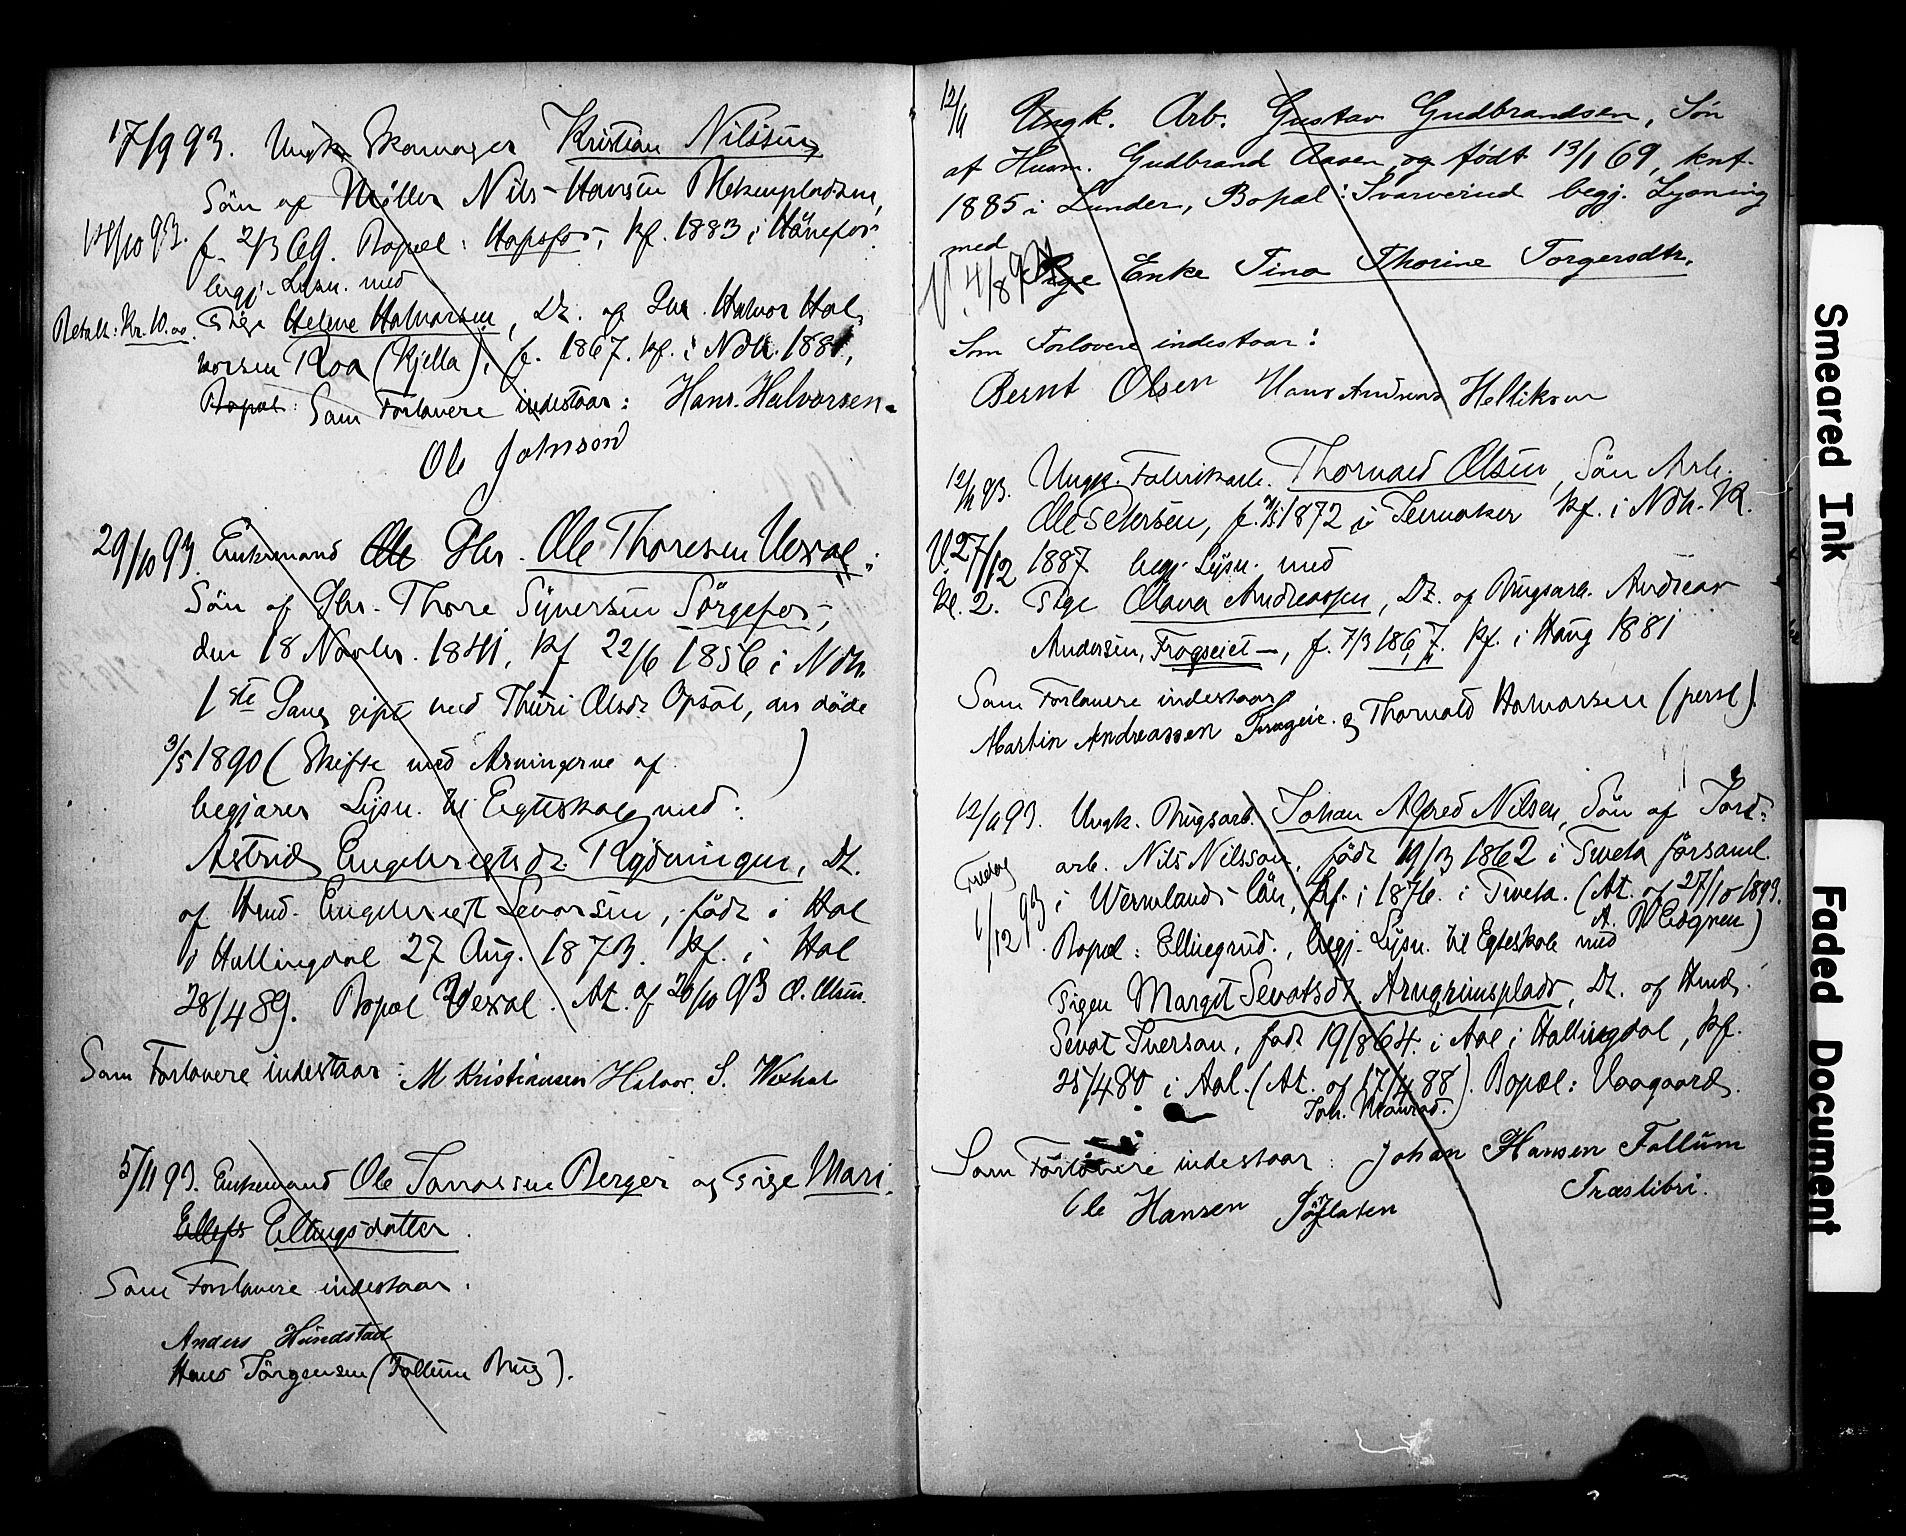 17/9 93. Ungk Skomager Kristian Nilssen,
Sön af Möller Nils Hansen
14/10 93. f. 2/3 69. Bopæl: Hofsfos, kf. 1883 i Hönefos
begj. Lysn. med
Betalt: Kr. 10.00 Pige Helene Halvorsen, Dt. af Halvor Hal-
vorsen Roa (Kjella), f. 1867. kf. i Ndh. 1881,
Bopæl: Som Forlovere indestaar: Hans. Halvorsen.
Ole Johnson
29/10 93. Enkemand Ole Gbr. Ole Thoresen Vexal:
Sön af Gbr. Thore Syversen Sörgefos,
den 18 Novbr. 1841, kf 22/6 1856 i Ndh.
1ste Gang gift med Thuri Olsdt Opsal, der döde
3/5 1890 (Skifte med Arvingerne af )
begjærer Lysn. til Egteskab med:
Astrid Engebretsdt. Rydningen, Dt.
af Hmd. Engebregt Sevorsen, födt i Hol
i Hallingdal 27 Aug. 1873. kf. i Hol
28/4 89. Bopæl Vexal. At. af 20/10 93 O. Olsen.
Som Forlovere indestaar: M Kristiansen Halvor. S. Wexhal
5/11 93. Enkemand Ole Berger og Pige Mari
Ellefs Ellingsdatter.
Som Forlovere indestaar.
Anders Hundstad
Hans Jörgensen (Follum Brug).
12/11 Ungk. Arb. Gustav Gudbrandsen, Sön
af Husm. Gudbrand Aasen, og født 13/1 69, knf.
1885 i Lunder, Bopæl: Svarverud begj. Lysning
med
V. 4/8 Pige Enke Tina Thorine Torgersdtr.
Som Forlovere indestaar:
Bernt Olsen Hans Andreas Helliksen
12/11 93. Ungk. Fabrikarb. Thorvald Olsen, Sön Arb.
Ole Pedersen, f. 1872 i Jevnaker kf. i Ndh. K.
V. 27/12 1887 begj. Lysn. med
Kl. 2. Pige Olava Andreassen, Dt. af Brugsarb. Andreas
Andersen, Frogseiet, f. 7/3 1867. kf. i Haug 1881
Som Forlovere indestaar
Martin Andreassen og Thorvald Halvorsen (persl).
12/11 93. Ungk. Brugsarb. Johan Alfred Nilsen, Sön af Jord-
Fredag arb. Nils Nilsson, född 19/3 1862 i Tveta församl.
1/12 93. i Wermlands län, kf. i 1876. i Tveta. (At. af 27/10 1893.
Bopæl: Ellingrud., begj. Lysn. til Egteskab med
Pigen Margit Sevatsdt. Arngrimsplads, Dt. af Hmd.
Sevat Iversen, födt 19/8 64. i Aal i Hallingdal, kf.
25/4 80 i Aal. (At. af 17/4 88). Bopæl: Vaagaard.
Som Forlovere indestaar: Johan Hansen Follum
Træslibri.
Ole Hansen
Smeared Ink
Faded Document